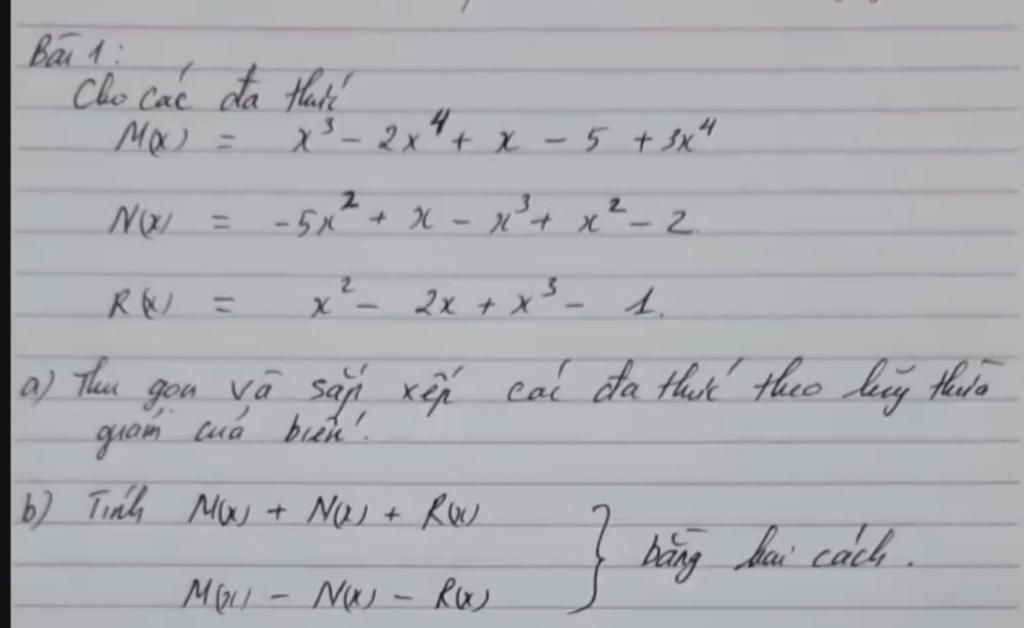 Bài 1:
Cho các đa thức
M(x) = x³ - 2x⁴ + x - 5 + 3x⁴
N(x) = -5x² + x - x³ + x² - 2.
R(x) = x² - 2x + x³ - 1.
a) Thu gọn và sắp xếp các đa thức theo luỹ thừa
giảm của biến.
b) Tính M(x) + N(x) + R(x)
bằng hai cách.
M(x) - N(x) - R(x)